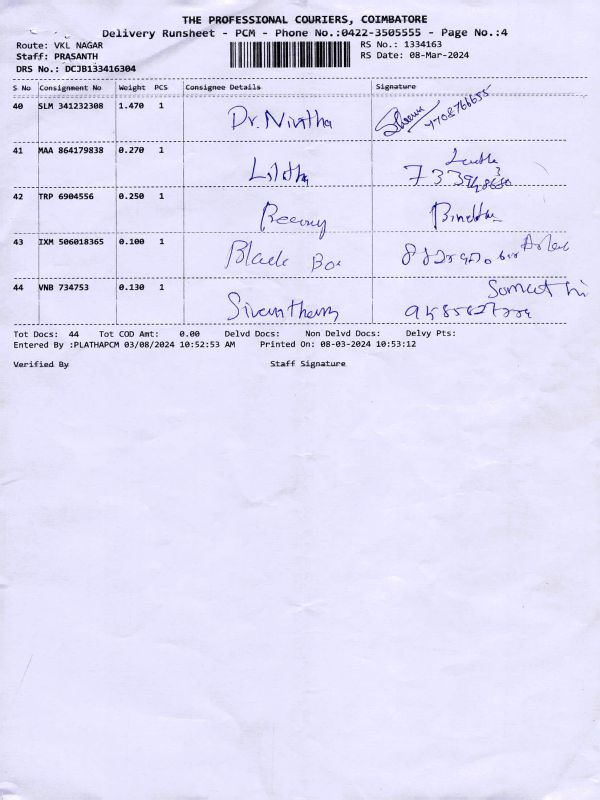 THE PROFESSIONAL COURIERS, COIMBATORE
Delivery Runsheet - PCM - Phone No.:0422-3505555 - Page No.:4
Route: VKL NAGAR RS No.: 1334163
Staff: PRASANTH RS Date: 08-Mar-2024
DRS No.: DCJB133416304
S No Consignment No Weight PCS Consignee Details Signature
40 SLM 341232308 1.470 1 Dr. Nivitha 7708766655
41 MAA 864179838 0.270 1
42 TRP 6904556 0.250 1
43 IXM 506018365 0.100 1 Black Box
44 VNB 734753 0.130 1
Tot Docs: 44 Tot COD Amt: 0.00 Delvd Docs: Non Delvd Docs: Delvy Pts:
Entered By :PLATHAPCM 03/08/2024 10:52:53 AM Printed On: 08-03-2024 10:53:12
Verified By Staff Signature